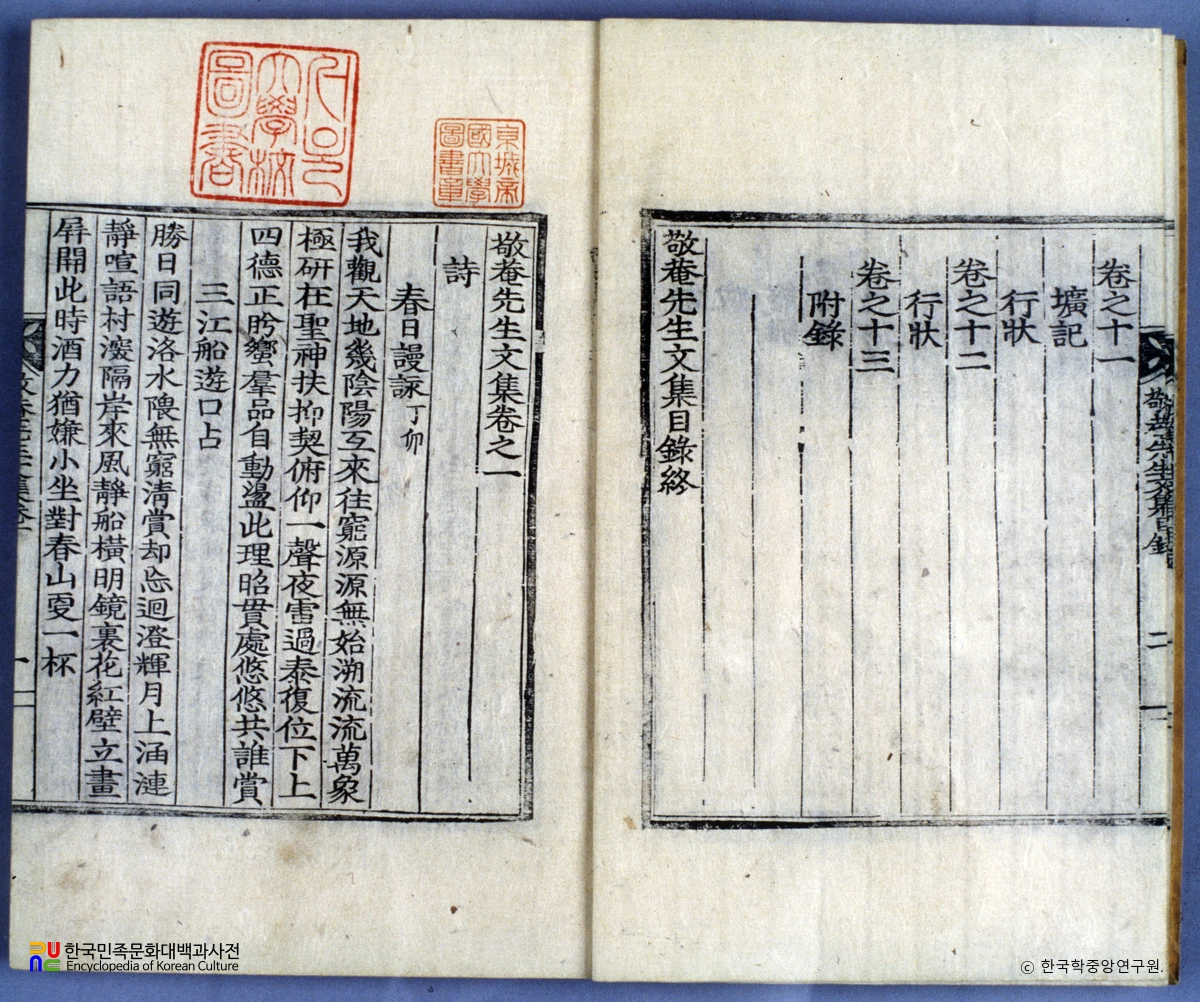 卷之十一
壙記
行狀
卷之十二
行狀
卷之十三
附錄
敬菴先生文集目錄終
敬菴先生文集目錄
二
敬菴先生文集卷之一
詩
春日謾詠 丁卯
我觀天地幾陰陽互來徃窮源源無始溯流流萬象
極硏在聖神扶抑契俯仰一聲夜雷過泰復位下上
四德正肹蠁羣品自動盪此理昭貫處悠悠共誰賞
三江船遊口占
勝日同遊洛水隈無窮淸賞却忘迴澄輝月上涵漣
靜喧語村深隔岸來風靜船橫明鏡裏花紅壁立畫
屛開此時酒力猶嫌小坐對春山更一杯
一
大學校
圖書
京城帝
國大學
圖書章
한국민족문화대백과사전
Encyclopedia of Korean Culture
ⓒ 한국학중앙연구원.